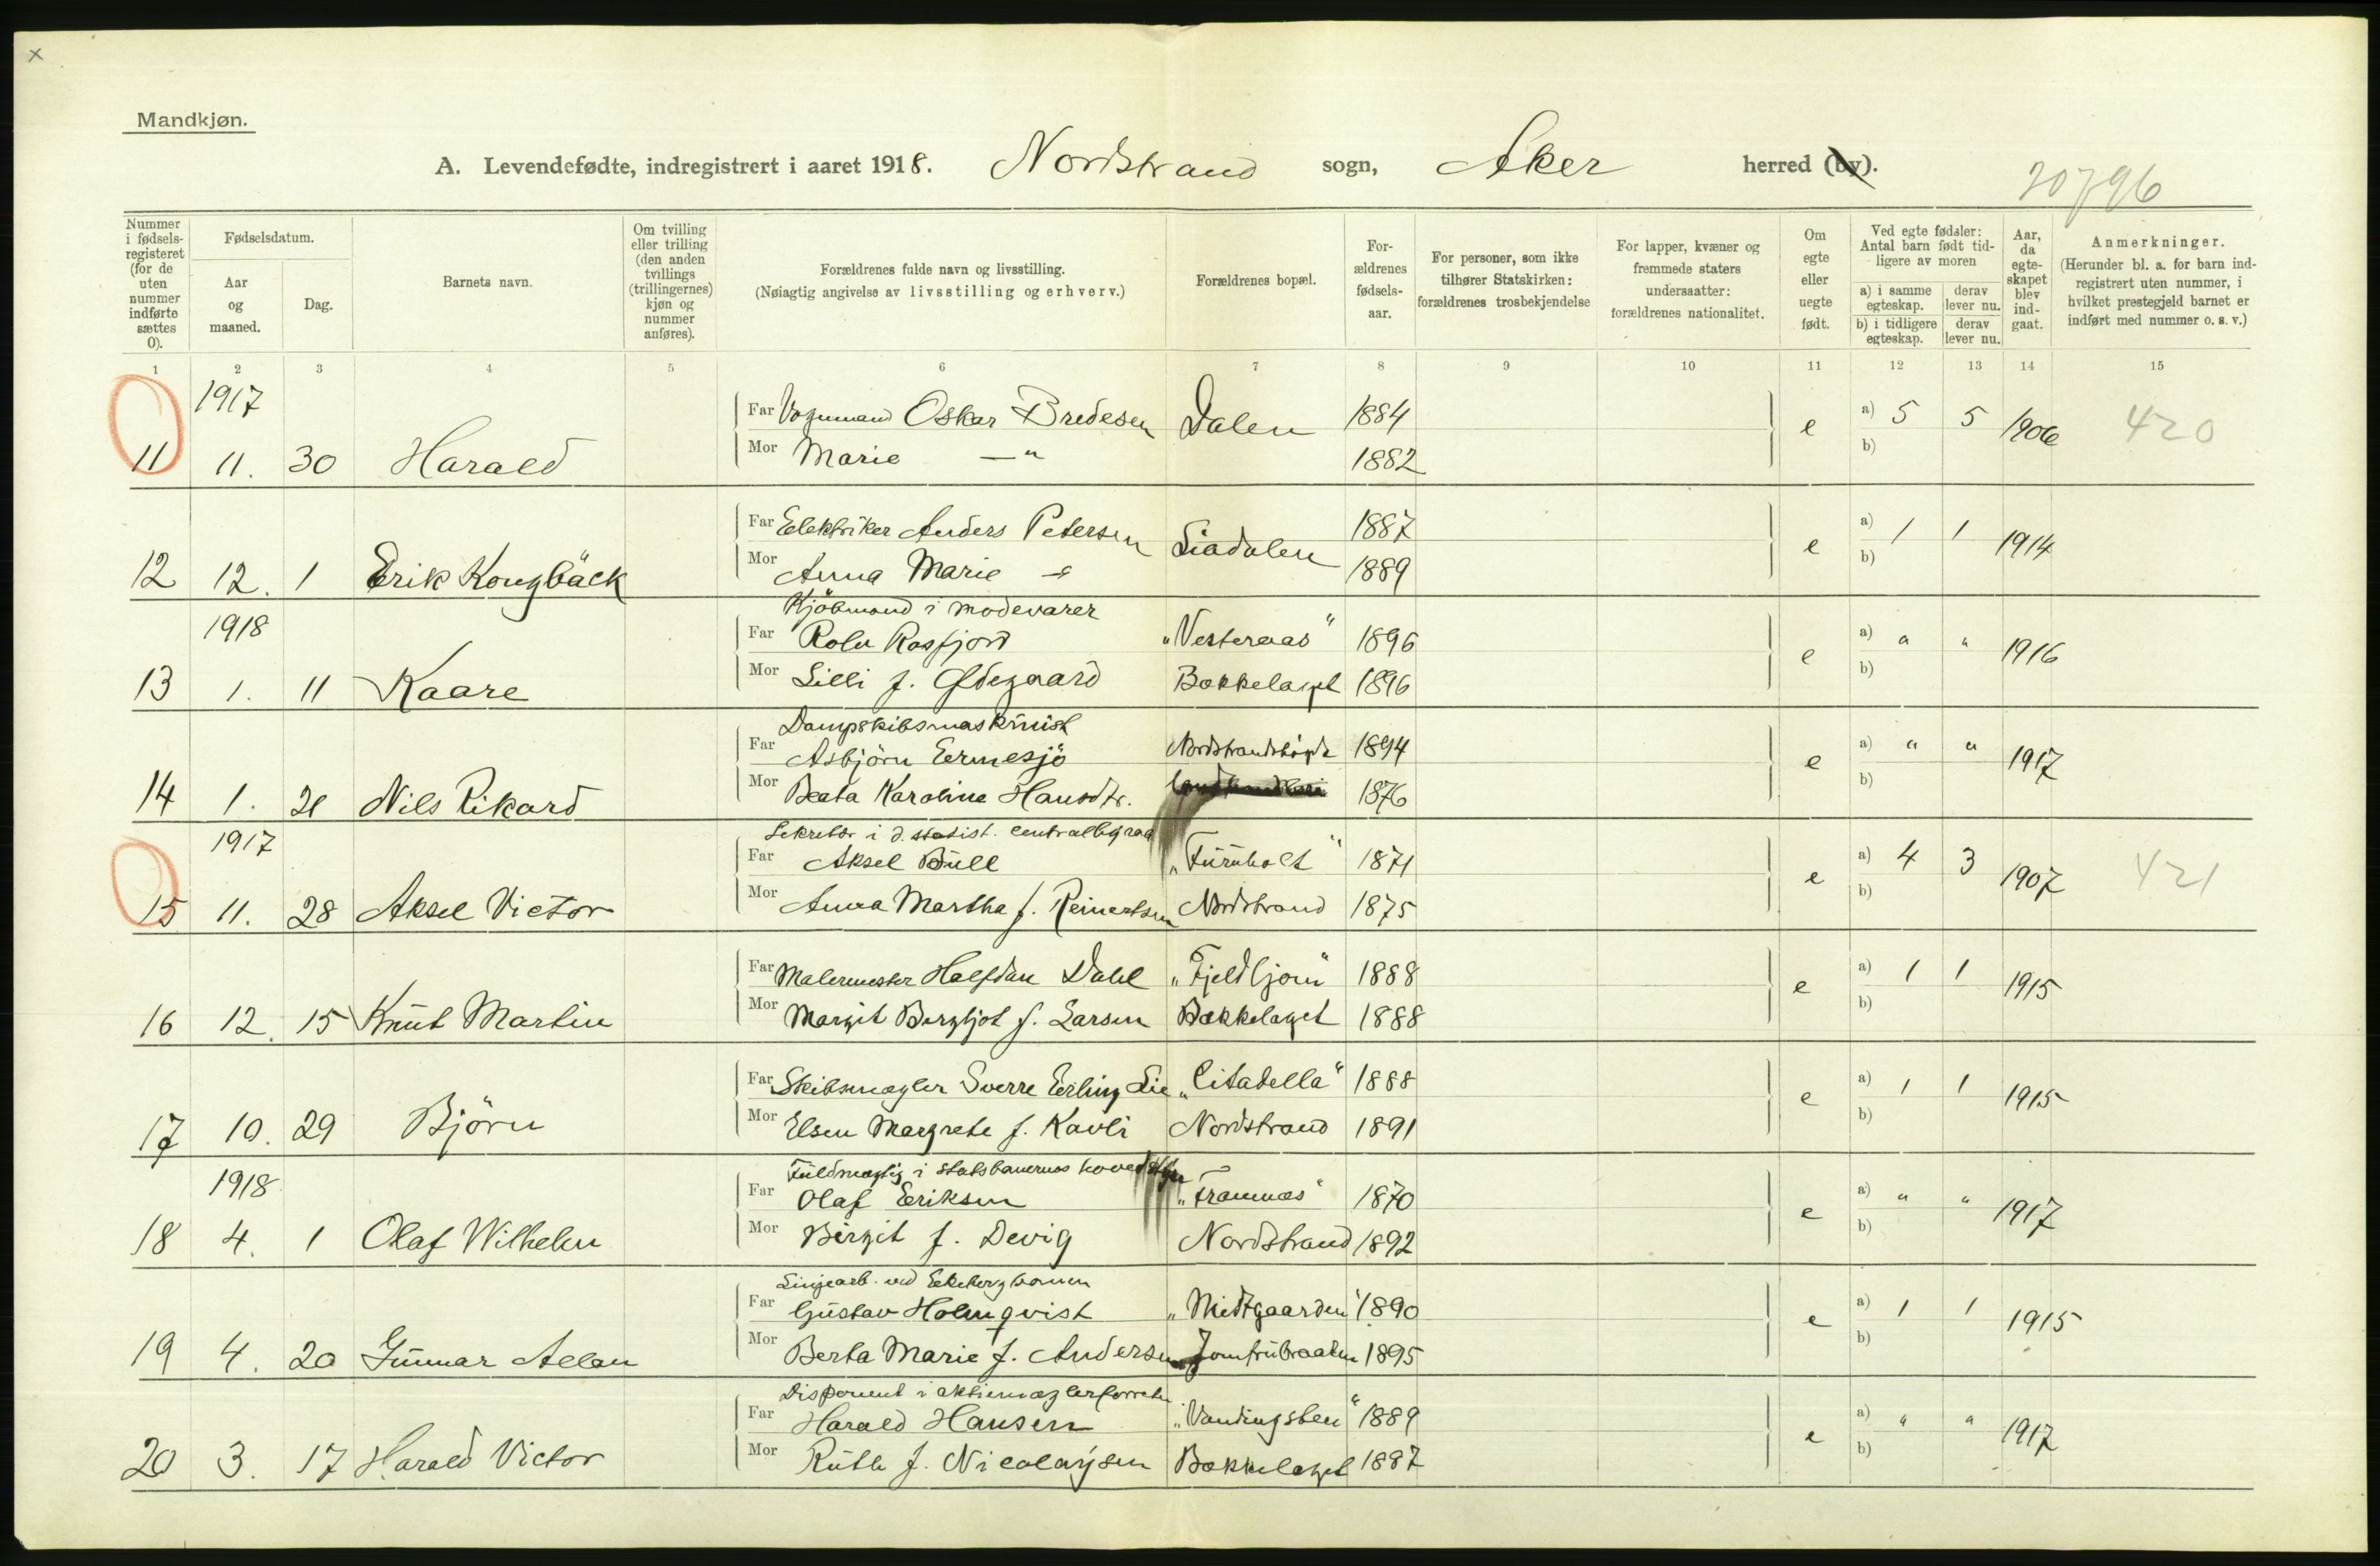 Mandkjøn.
A. Levendefødte, indregistrert i aaret 1918. Nordstrand sogn, Aker herred (by).
20796
Nummer i fødselsregisteret (for de uten nummer indførte sættes 0).
Fødselsdatum.
Aar og maaned.
Dag.
Barnets navn.
Om tvilling eller trilling (den anden tvillings (trillingernes) kjøn og nummer anføres).
Forældrenes fulde navn og livsstilling.
(Nøiagtig angivelse av livsstilling og erhverv.)
Forældrenes bopæl.
Forældrenes fødselsaar.
For personer, som ikke tilhører Statskirken: forældrenes trosbekjendelse
For lapper, kvæner og fremmede staters undersaatter: forældrenes nationalitet.
Om egte eller uegte født.
Ved egte fødsler: Antal barn født tidligere av moren
a) i samme egteskap. derav lever nu.
b) i tidligere egteskap. derav lever nu.
Aar, da egteskapet blev indgaat.
Anmerkninger.
(Herunder bl. a. for barn indregistrert uten nummer, i hvilket prestegjeld barnet er indført med nummer o. s. v.)
1 2 3 4 5 6 7 8 9 10 11 12 13 14 15
1917
Far Vognmand Oskar Bredesen Dalen 1884
11 11. 30 Harald e a) 5 5 1906 420
Mor Marie —"— 1882 b)
Far Elektriker Anders Petersen Liadalen 1887
12 12. 1 Erik Kongbäck e a) 1 1 1914
Mor Anna Marie 1889 b)
1918 Kjöbmand i modevarer
Far Rolv Rosfjord "Vesteraas" 1896
13 1. 11 Kaare e a) " " 1916
Mor Lilli f. Ødegaard Bækkelaget 1896 b)
Dampskibsmaskinist
Far Asbjörn Ermesjö Nordstrandshögda 1894
14 1. 21 Nils Rikard e a) " " 1917
Mor Beata Karoline Hansdtr. 1876 b)
1917 Sekretær i d. statist. centralbyraa
Far Aksel Bull "Furuholt" 1871
15 11. 28 Aksel Victor e a) 4 3 1907 421
Mor Anna Martha f. Reinertsen Nordstrand 1875 b)
Far Malermester Halfdan Dahl "Fjeldljom" 1888
16 12. 15 Knut Martin e a) 1 1 1915
Mor Margit Bergljot f. Larsen Bækkelaget 1888 b)
Far Skibsmægler Sverre Erling Lie "Citadella" 1888
17 10. 29 Björn e a) 1 1 1915
Mor Elsen Margrete f. Kavli Nordstrand 1891 b)
1918 Fuldmægtig i statsbanernes hovedstyre
Far Olaf Eriksen "Framnæs" 1870
18 4. 1 Olaf Wilhelm e a) " " 1917
Mor Birgit f. Devig Nordstrand 1892 b)
Linjearb. ved Ekebergbanen
Far Gustav Holmqvist "Midtgaarden" 1890
19 4. 20 Gunnar Allan e a) 1 1 1915
Mor Berta Marie f. Andersen Jomfrubraaten 1895 b)
Disponent i aktiemæglerforretn
Far Harald Hansen "Vandingsten" 1889
20 3. 17 Harald Victor e a) " " 1917
Mor Ruth f. Nicolaysen Bækkelaget 1887 b)